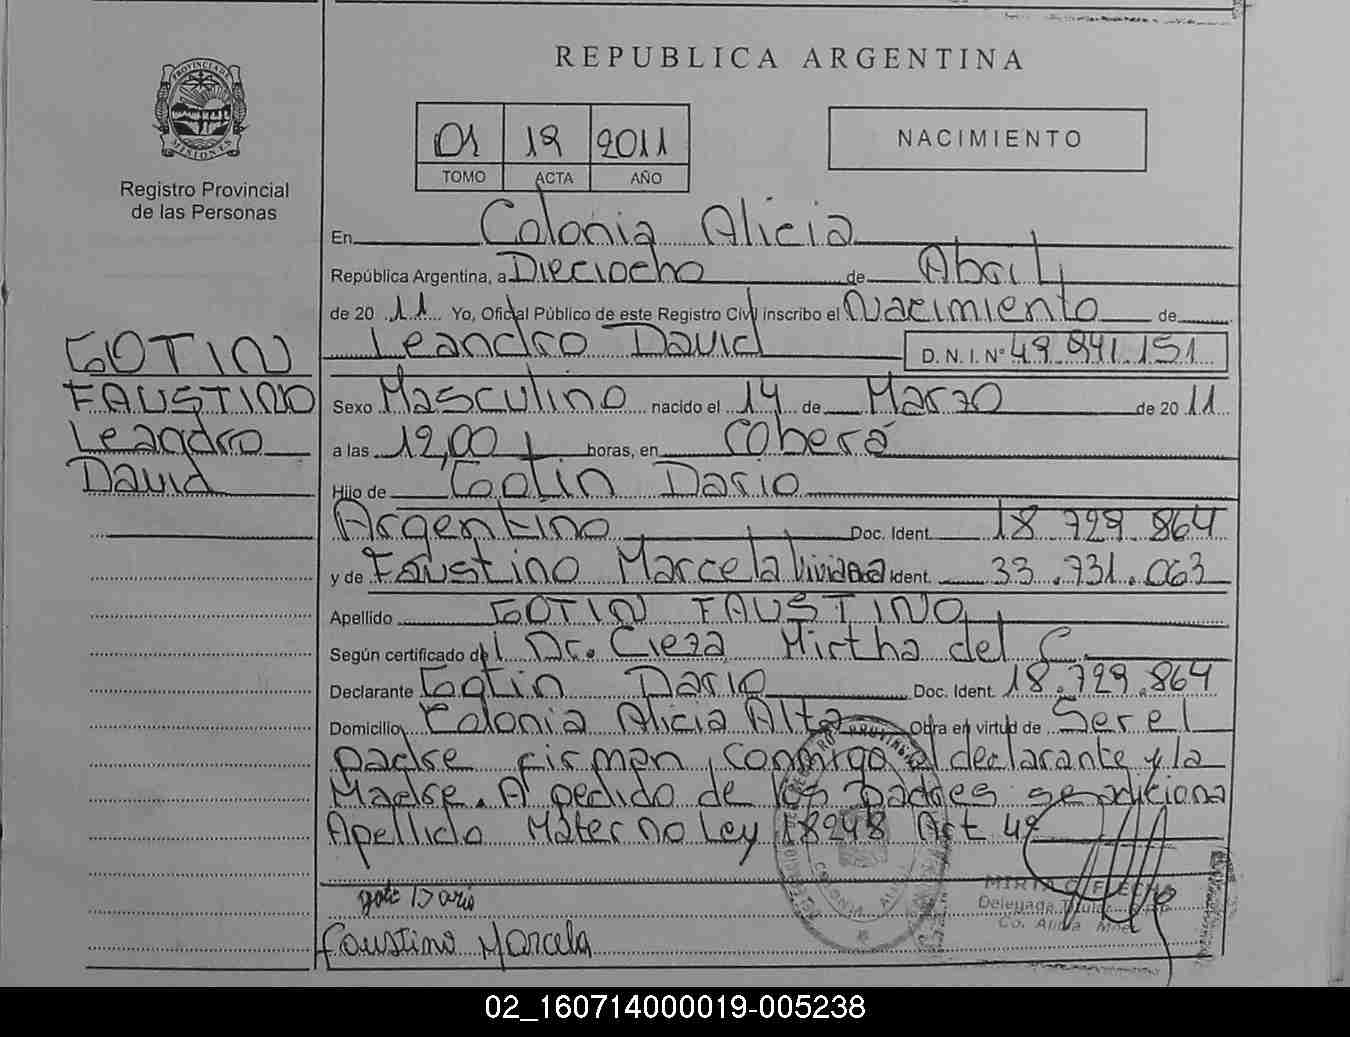 REPUBLICA ARGENTINA
PROVINCIA DE MISIONES
Registro Provincial
de las Personas
01 12 2011
TOMO ACTA AÑO
NACIMIENTO
En Colonia Alicia
República Argentina, a Dieciocho de Abril
de 20 11 Yo, Oficial Público de este Registro Civil inscribo el Nacimiento de
Leandro David D. N. I. Nº
GOTIN
FAUSTINO
Leandro
David
Sexo Masculino nacido el 14 de Marzo de 20 11
a las 12,00 horas, en Oberá
Hijo de Gotin Dario
Argentino Doc. Ident. 18.729.864
y de Faustino Marcela Viviana Ident. 33.731.063
Apellido GOTIN FAUSTINO
Según certificado del Dr. Cieza Mirtha del C.
Declarante Gotin Dario Doc. Ident. 18.729.864
Domicilio Colonia Alicia Alta Obra en virtud de Ser el
padre firman conmigo el declarante y la
Madre. A pedido de los padres se adiciona
Apellido Materno Ley 18248 Art 4º
Dario
Faustino Marcela
Delegada Titular
Co. Alicia Mnes
02_160714000019-005238